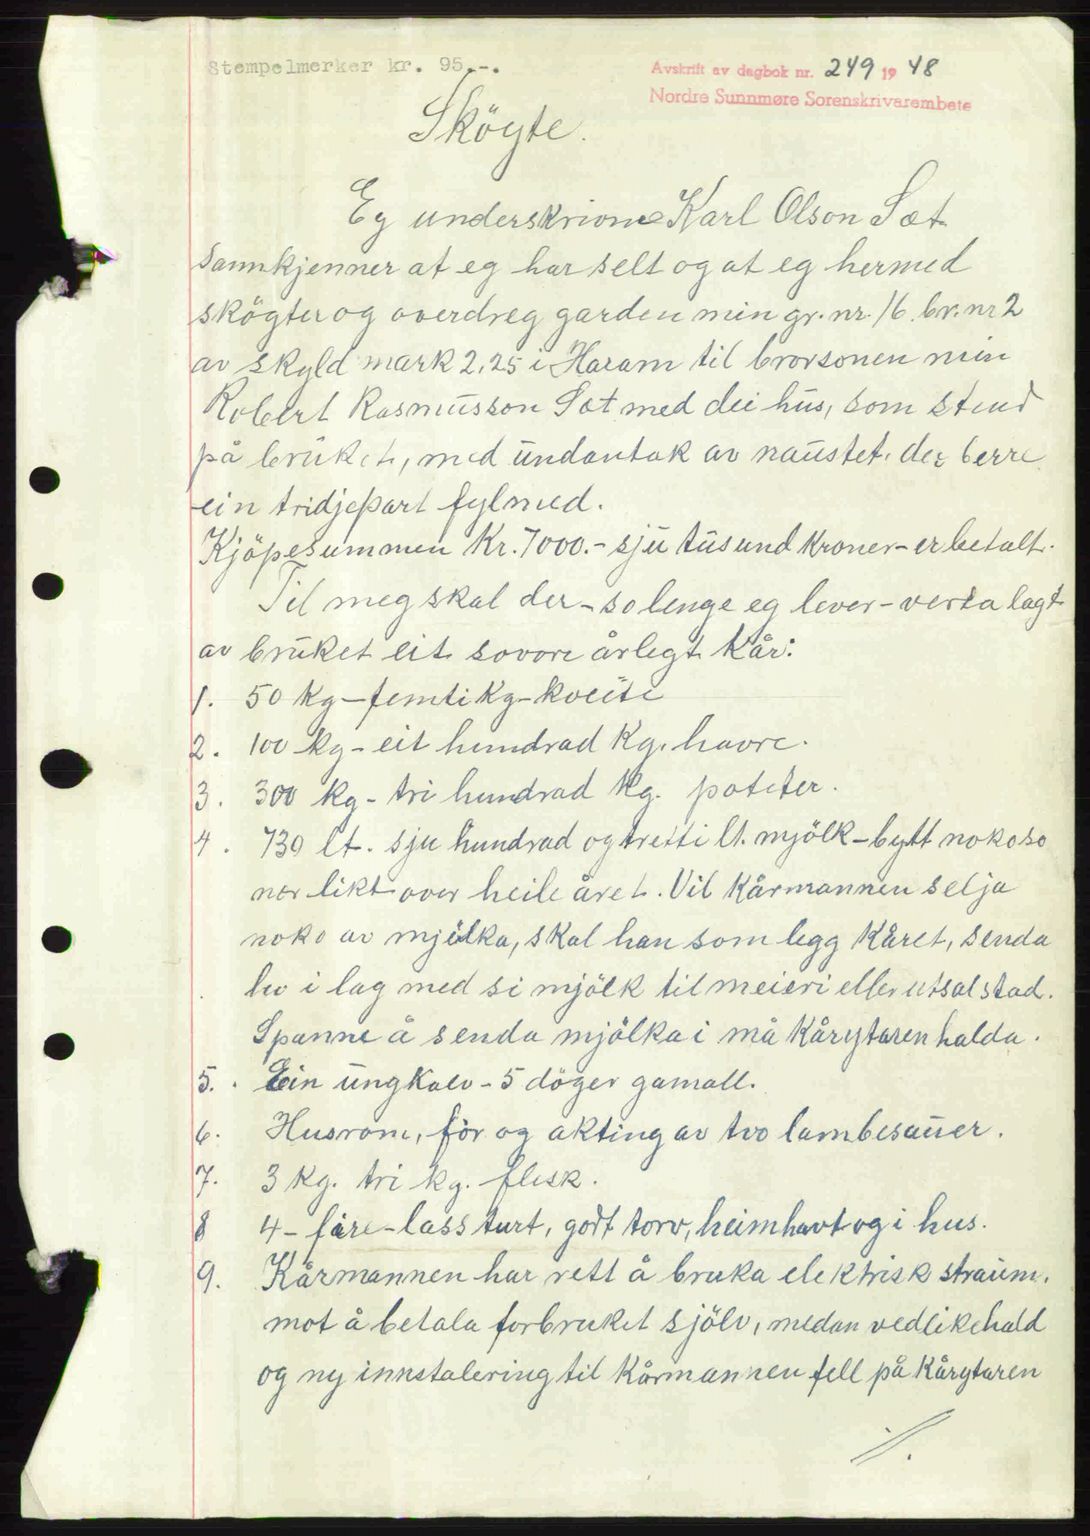 Stempelmerker kr. 95.-.
Avskrift av dagbok nr. 249 1948
Nordre Sunnmøre Sorenskrivarembete
Sköyte.
Eg underskrivne Karl Olson Sæt
sannkjenner at eg har selt og at eg hermed
sköyter og overdreg garden min gr. nr. 16. br. nr 2
av skyld mark 2,25 i Haram til brorsonen min
Robert Rasmusson Sæt med dei hus, som stend
på bruket, med undantak av naustet, der berre
ein tridjepart fylmed.
Kjöpesummen Kr. 7000.- sju tusund kroner - er betalt.
Til meg skal der - so lenge eg lever - verta lagt
av bruket eit sovore årlegt kår:
1. 50 kg - femti kg - kveite
2. 100 kg - eit hundrad kg. havre.
3. 300 kg - tri hundrad kg. poteter.
4. 730 lt. sju hundrad og tretti lt. mjölk - bytt nokoso
nær likt over heile året. Vil kårmannen selja
noko av mjölka, skal han som legg kåret, senda
ho i lag med si mjölk til meieri eller utsalstad.
Spanne å senda mjölka i må kårytaren halda.
5. Ein ungkalv - 5 döger gamall.
6. Husrom, fór og akting av tvo lambesauer.
7. 3 kg. tri kg. flesk.
8 4 - fire - lass turt, godt torv, heimhavt og i hus.
9. Kårmannen har rett å bruka elektrisk straum,
mot å betala forbruket sjölv, medan vedlikehald
og ny innstalering til kårmannen fell på kårytaren
./.